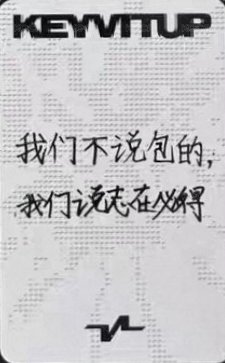 KEYVITUP
我们不说包的,
我们说志在必得